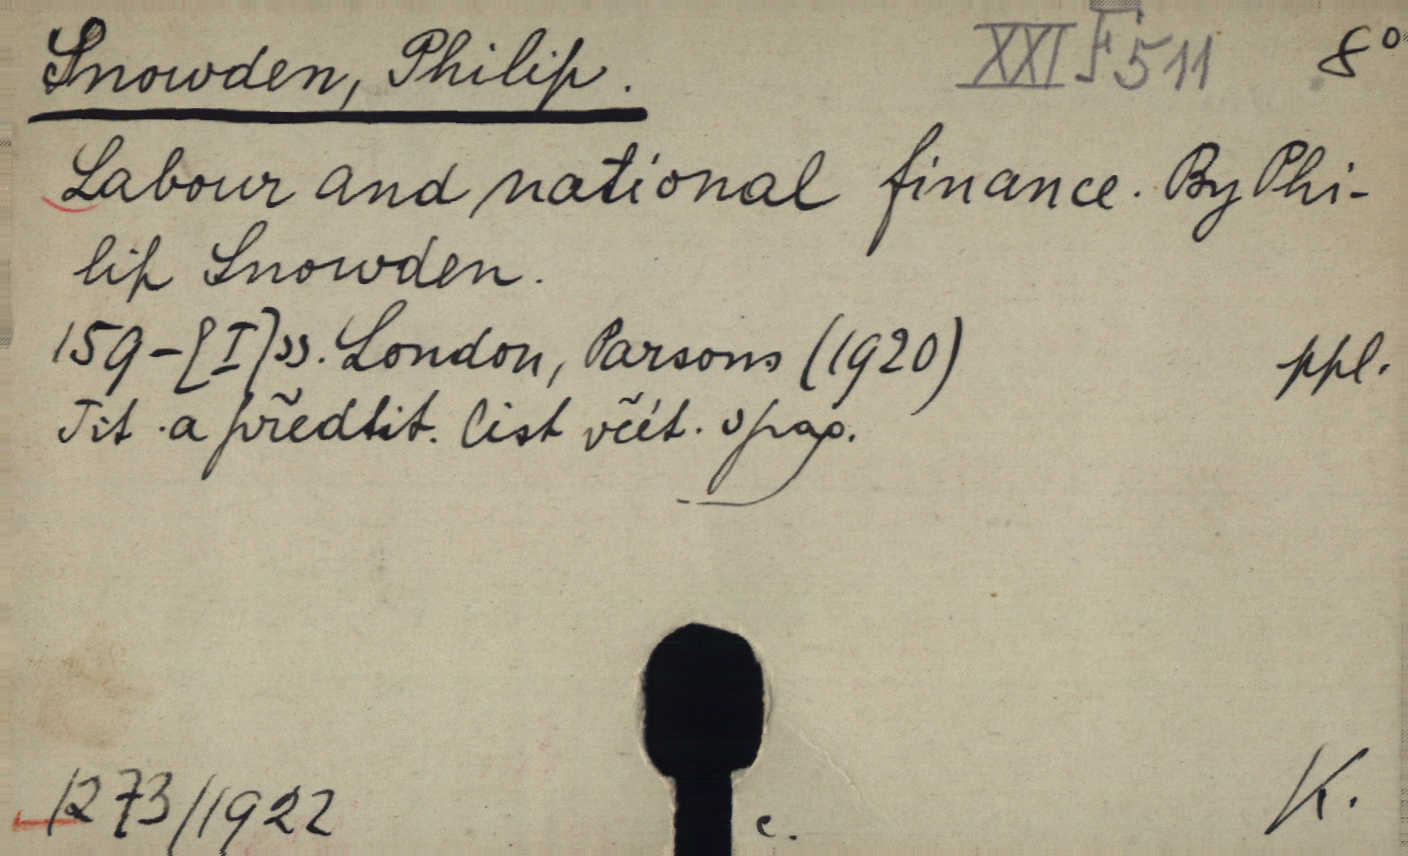 Snowden, Philip. XXI F 511 8°
Labour and national finance. By Phi-
lip Snowden.
159-[I] ss. London, Parsons (1920) ppl.
Tit. a předtit. list včít. v pag.
1273/1922 c. K.